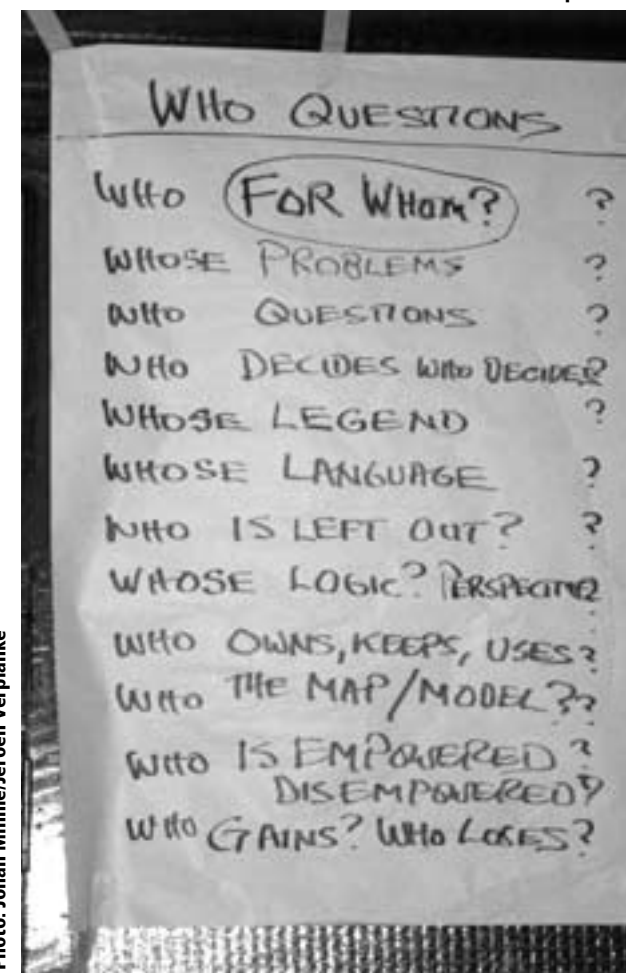 WHO QUESTIONS
WHO FOR WHOM? ?
WHOSE PROBLEMS ?
WHO QUESTIONS ?
WHO DECIDES WHO DECIDES?
WHOSE LEGEND ?
WHOSE LANGUAGE ?
WHO IS LEFT OUT? ?
WHOSE LOGIC? PERSPECTIVE?
WHO OWNS, KEEPS, USES?
WHO THE MAP/MODEL??
WHO IS EMPOWERED?
DISEMPOWERED?
WHO GAINS? WHO LOSES?
Photo: Johan Minnie/Jeroen Verplanke